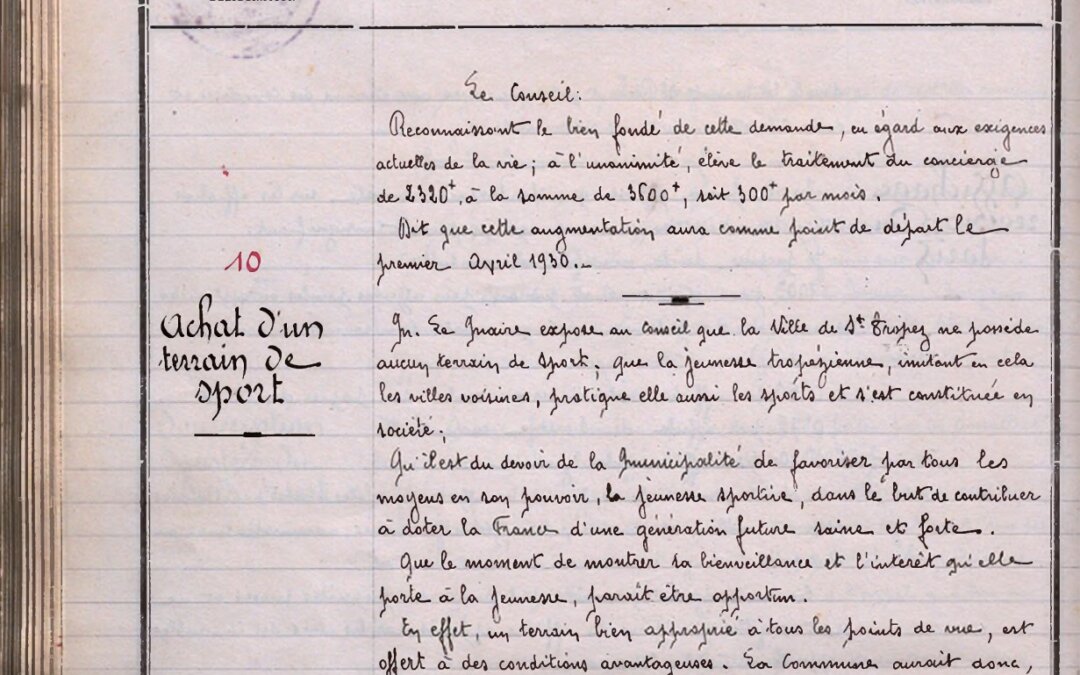 Le Conseil:
Reconnaissant le bien fondé de cette demande, eu égard aux exigences
actuelles de la vie; à l'unanimité, élève le traitement du concierge
de 2320⁺, à la somme de 3600⁺, soit 300⁺ par mois.
Dit que cette augmentation aura comme point de départ le
premier Avril 1930._
10
Achat d'un
terrain de
sport
M. Le Maire expose au Conseil que la Ville de St Tropez ne possède
aucun terrain de Sport; que la jeunesse tropézienne, imitant en cela
les villes voisines, pratique elle aussi les sports et s'est constituée en
société;
Qu'il est du devoir de la Municipalité de favoriser par tous les
moyens en son pouvoir, la jeunesse sportive, dans le but de contribuer
à doter la France d'une génération future saine et forte.
Que le moment de montrer sa bienveillance et l'interêt qu'elle
porte à la Jeunesse, paraît être opportun.
En effet, un terrain bien approprié à tous les points de vue, est
offert à des conditions avantageuses. La Commune aurait donc,